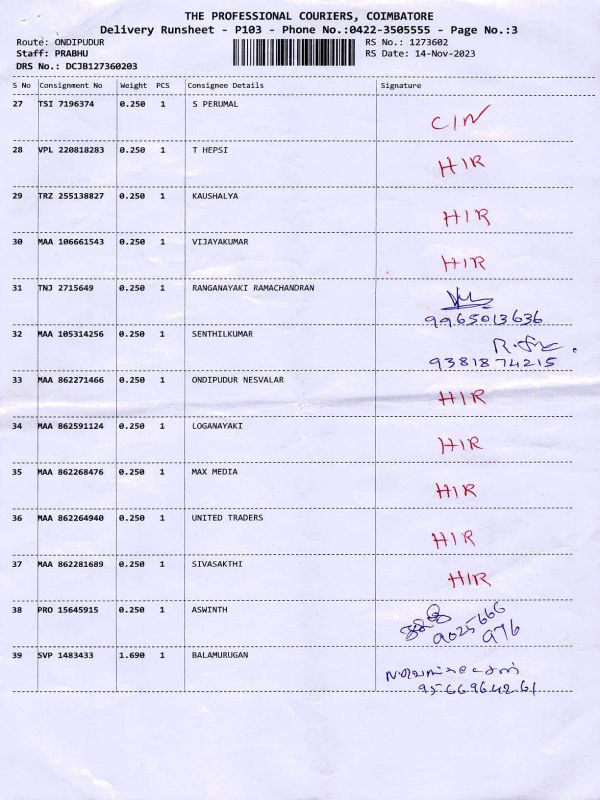 THE PROFESSIONAL COURIERS, COIMBATORE
Delivery Runsheet - P103 - Phone No.:0422-3505555 - Page No.:3
Route: ONDIPUDUR RS No.: 1273602
Staff: PRABHU RS Date: 14-Nov-2023
DRS No.: DCJB127360203
S No Consignment No Weight PCS Consignee Details Signature
27 TSI 7196374 0.250 1 S PERUMAL
CIN
28 VPL 220818283 0.250 1 T HEPSI
HIR
29 TRZ 255138827 0.250 1 KAUSHALYA
HIR
30 MAA 106661543 0.250 1 VIJAYAKUMAR
HIR
31 TNJ 2715649 0.250 1 RANGANAYAKI RAMACHANDRAN
9965013636
32 MAA 105314256 0.250 1 SENTHILKUMAR
9381874215
33 MAA 862271466 0.250 1 ONDIPUDUR NESVALAR
HIR
34 MAA 862591124 0.250 1 LOGANAYAKI
HIR
35 MAA 862268476 0.250 1 MAX MEDIA
HIR
36 MAA 862264940 0.250 1 UNITED TRADERS
HIR
37 MAA 862281689 0.250 1 SIVASAKTHI
HIR
38 PRO 15645915 0.250 1 ASWINTH
9025666
976
39 SVP 1483433 1.690 1 BALAMURUGAN
9566964261